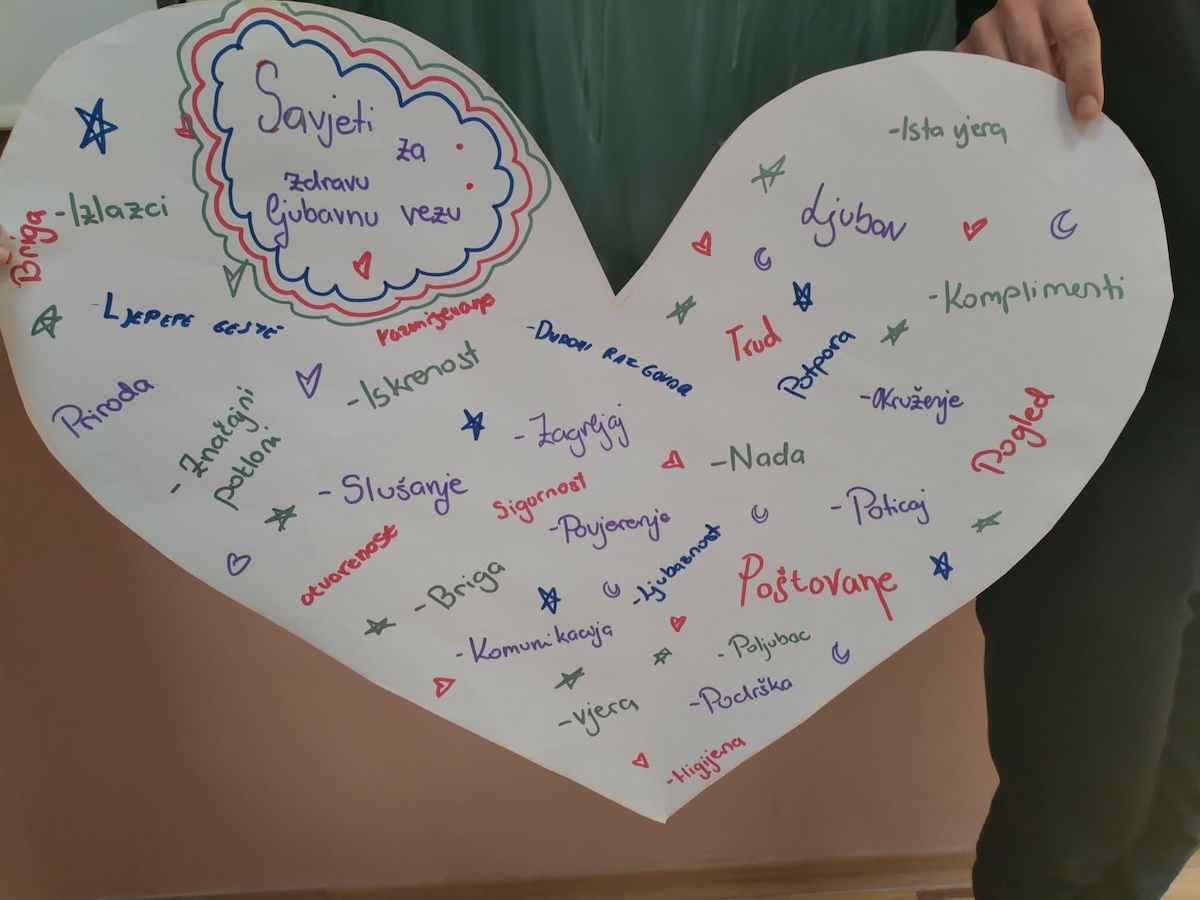 Savjeti
za
zdravu
ljubavnu vezu
-Izlazci
Briga
LJEPEPE GESTE
razmijevanje
-Iskrenost
Priroda
-Značajni
pokloni
-Slušanje
otvorenost
-Zagrljaj
Sigurnost
-Povjerenje
-Briga
-Komunikacija
-Ljubaznost
-Ista vjera
Ljubav
-Komplimenti
Trud
Potpora
-Okruženje
Pogled
-Nada
-Poticaj
Poštovanje
-Poljubac
-Podrška
-vjera
-Higijena